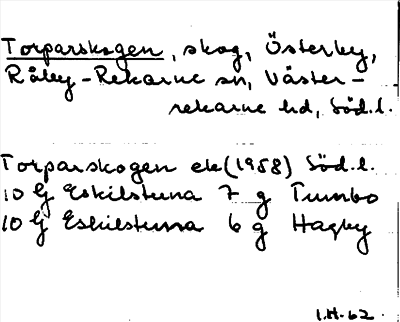 Torparskogen, skog, Österby,
Råby-Rekarne sn, Väster-
rekarne hd, Söd.l.
Torparskogen ek (1958) Söd.l.
10 G Eskilstuna 7 g Tumbo
10 G Eskilstuna 6 g Hagby
I.H-62.